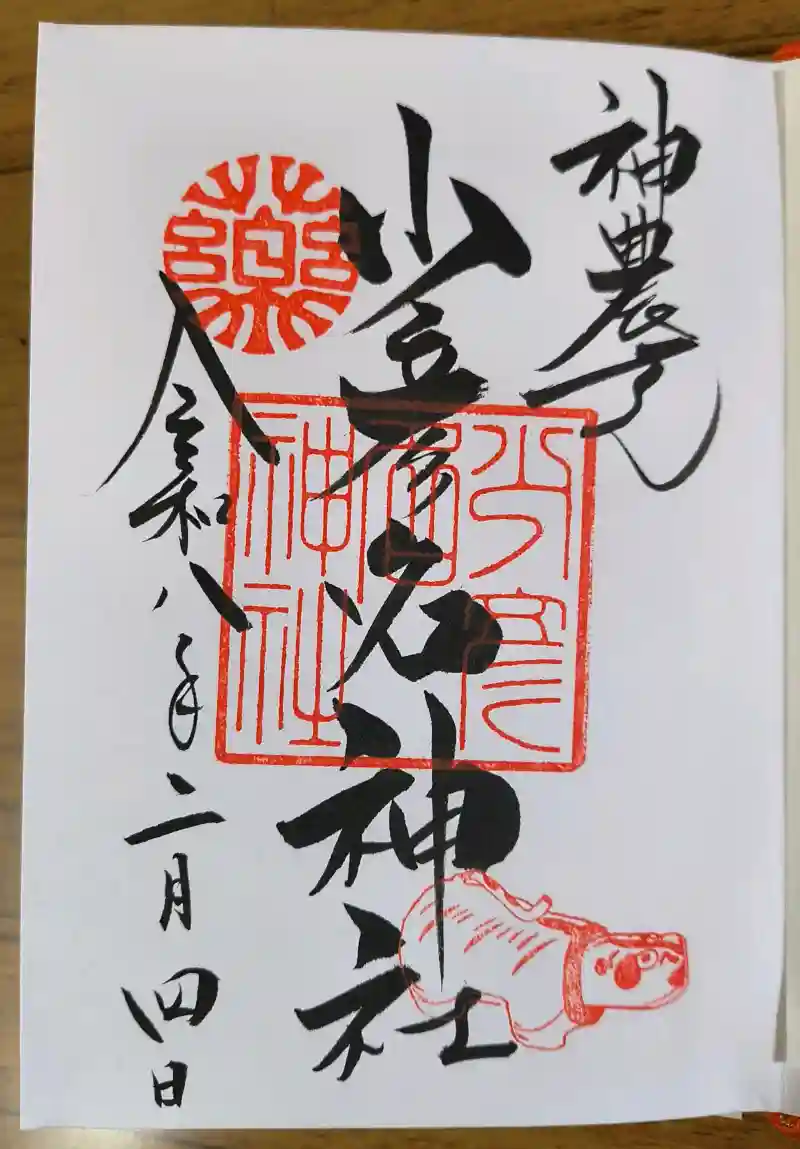 神農さん
少彦名神社
令和八年二月四日
藥
少彦名神社